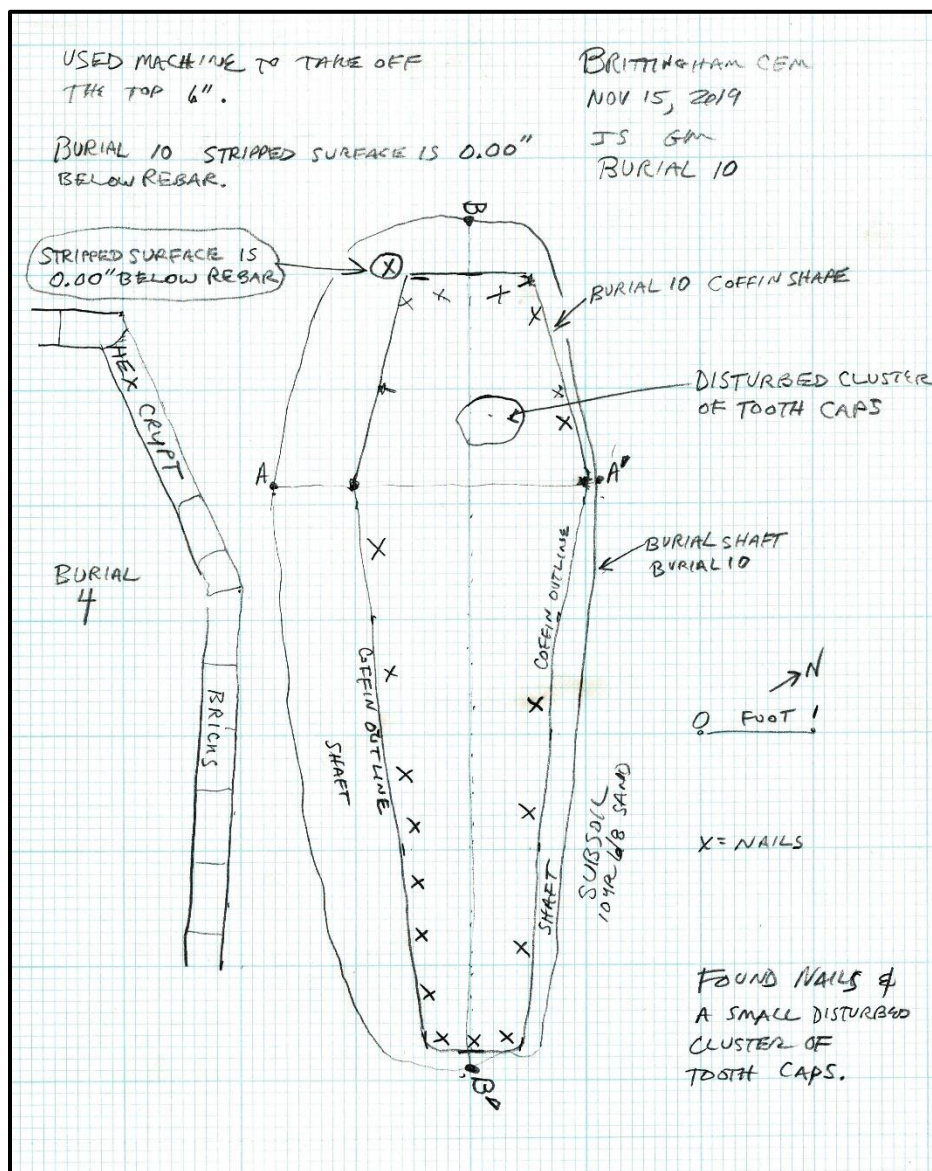 USED MACHINE TO TAKE OFF
THE TOP 6".
BURIAL 10 STRIPPED SURFACE IS 0.00"
BELOW REBAR.
BRITTINGHAM CEM
NOV 15, 2019
JS GM
BURIAL 10
B
STRIPPED SURFACE IS
0.00" BELOW REBAR
X
BURIAL 10 COFFIN SHAPE
HEX CRYPT
DISTURBED CLUSTER
OF TOOTH CAPS
A
A'
BURIAL SHAFT
BURIAL 10
BURIAL
4
COFFIN OUTLINE
COFFIN OUTLINE
BRICKS
SHAFT
N
0 FOOT 1
SUBSOIL
10YR 6/8 SAND
SHAFT
X = NAILS
FOUND NAILS &
A SMALL DISTURBED
CLUSTER OF
TOOTH CAPS.
B'